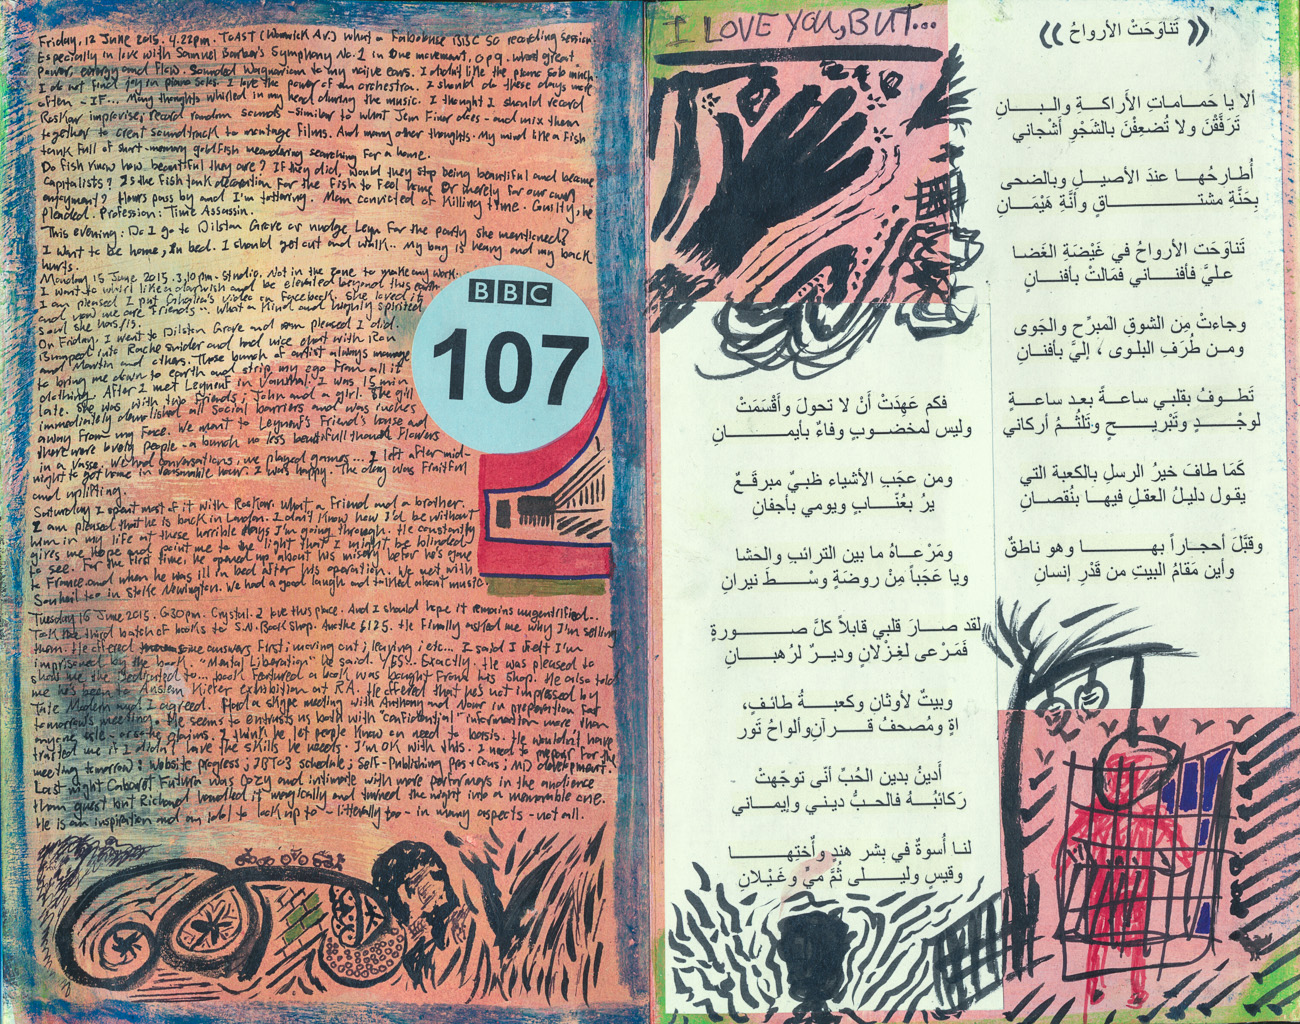 Friday, 12 June 2015. 4.22pm. Toast (Warwick Av.) What a Fabolouse BBC SO recording session.
Especially in love with Samuel Barber's Symphony No. 1 in One movement, op 9. what great
power, energy and flow. Sounded Wagnarian to my naive ears. I didn't like the piano solo much
I do not find joy in piano solos. I love the power of an orchestra. I should do these days more
often - IF... Many thoughts whirled in my head during the music. I thought I should record
Reskar improvise, record random sounds - similar to what Jem Finer does - and mix them
together to creat soundtrack to montage films. And many other thoughts. My mind like a fish
tank full of short-memory goldfish meandering searching for a home.
Do fish know how beautiful they are? If they did, would they stop being beautiful and became
capitalists? Is the fish tank decoration for the fish to feel home or merely for our own
enjoyment? Hours pass by and I'm tottering. Man convicted of killing time. Guilty, he
pleaded. Profession: Time Assassin.
This evening: Do I go to Dilston Grove or nudge Leyn for the party she mentioned?
I want to be home, in bed. I should get out and walk... my bag is heavy and my back
hurts.
Monday 15 June 2015. 3.10pm - Studio. Not in the zone to make any work.
I want to whirl like a darwish and be elevated beyond this earth
I am pleased I put video on Facebook. She loved it
and now we are friends... what a kind and highly spirited
soul she has/is.
On Friday, I went to Dilston Grove and am pleased I did.
Bumped into and had nice chat with Ron
and Martin and others. Those bunch of artist always manage
to bring me down to earth and strip my ego from all it
clothing. After I met in Vauxhall. I was 15 min
late. She was with two friends; John and a girl. The girl
immediately demolished all social barriers and was inches
away from my face. We went to friend's house and
there were lovely people - a bunch no less beautifull than flowers
in a vase. We had conversations; we played games... I left after mid-
night to get home in reasonable hour. I was happy. The day was fruitful
and uplifting.
Saturday I spent most of it with Reskar. What a friend and a brother.
I am pleased that he is back in London. I don't know how I'd be without
him in my life at these horrible days I'm going through. He constantly
gives me hope and point me to the light that I might be blinded
to see. For the first time, he opened up about his misery befor he's gone
to France and when he was ill in bed after his operation. We met with
Souheil too in Stoke Newington. We had a good laugh and talked about music.
Tuesday 16 June 2015. 6:30pm. Crystal. I love this place. And I should hope it remains ungentrified...
Took the third batch of books to S.N. Book Shop. Another £125. He finally asked me why I'm selling
them. He offered some answers first: moving out; leaving; etc... I said I felt I'm
imprisoned by the book. "Mental Liberation" he said. Yes.. Exactly. He was pleased to
show me the Dedicated to... book featured a book was bought from his shop. He also told
me he's been to Anslem Kiefer exhibition at RA. He offered that he's not impressed by
Tate Modern and I agreed. Had a skype meeting with Anthony and Nour in preparation for
tomorrow's meeting. He seems to entrust us bold with "confidential" information more than
anyone else - or so he claims. I think he let people know on need to basis. He wouldn't have
trusted me if I didn't have the skills he needs. I'm OK with this. I need to prepare for the
meeting tomorrow: Website progress; JBT03 schedule; Self-Publishing pros + cons; MD development.
Last night Cabaret Futura was cozy and intimate with more performers in the audience
than guest but Richard handled it magically and turned the night into a memorable one.
He is an inspiration and an idol to look up to - litterally too - in many aspects - not all.
BBC
107
I LOVE YOU, BUT...
《 تَناوَحَتْ الأرواحُ 》
ألا يا حَمـامـاتِ الأَراكـةِ والـبـانِ
تَرَفَّقْنَ ولا تُضعِفْنَ بالشَجْوِ أشْجاني
أُطارِحُها عندَ الأصيلِ وبالضحى
بِحَنَّةِ مشتـاقٍ وأنَّةِ هَيْمَانِ
تَناوَحَت الأرواحُ في غَيْضَةِ الغَضا
عليَّ فأفنـاني فمَالتْ بأفنـانِ
وجاءتْ مِن الشوقِ المَبرِّحِ والجَوى
ومن طُرَفِ البلوى ، إليَّ بأفنانِ
تَطوفُ بقلبي ساعةً بعد ساعةٍ
لوجْـدٍ وتَبْريـحٍ وتَلثُـمُ أركاني
كَمَا طافَ خيرُ الرسلِ بالكعبة التي
يقول دليلُ العقلِ فيها بنُقصَانِ
وقبَّلَ أحجـاراً بـهـا وهو ناطقٌ
وأين مَقامُ البيتِ من قَدْرِ إنسانِ
فكم عَهِدَتْ أنْ لا تحولَ وأقْسَمَتْ
وليس لمخضـوبٍ وفاءٌ بأيمـانِ
ومن عجَبِ الأشياء ظبيٌ مبرقَـعٌ
يرُ بعُنَّـابٍ ويومي بأجفانِ
ومَرْعـاهُ ما بين الترائبِ والحشا
ويا عَجَباً مِنْ روضةٍ وسْـطَ نيرانِ
لقد صـارَ قلبي قابلاً كلَّ صـورةٍ
فَمَرْعى لغِزْلانٍ وديـرٌ لرُهبـانِ
وبيتٌ لأوثانٍ وكعبـةُ طائـفٍ،
اةٍ ومُصحفُ قـرآنِ وألواحُ تَور
أَدينُ بدين الحُبِّ أنّى توجّهتْ
رَكائبُـهُ فالحبُّ ديني وإيماني
لنا أُسوةٌ في بشرِ هندٍ وأُختِهـا
وقيسٍ وليلـى ثمَّ ميٍّ وغَيْـلانِ